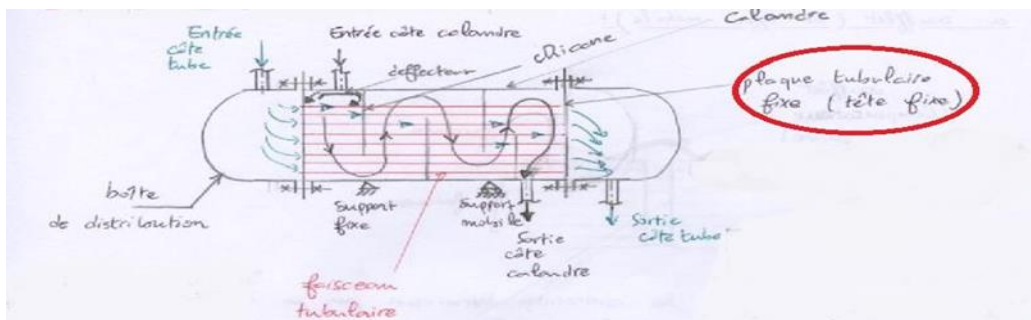 calandre
Entrée
côté
tube
Entrée côté calandre
déflecteur
chicane
plaque tubulaire
fixe (tête fixe)
boîte
de distribution
support
fixe
Support
mobile
Sortie
côté
calandre
Sortie
côté tube
faisceau
tubulaire